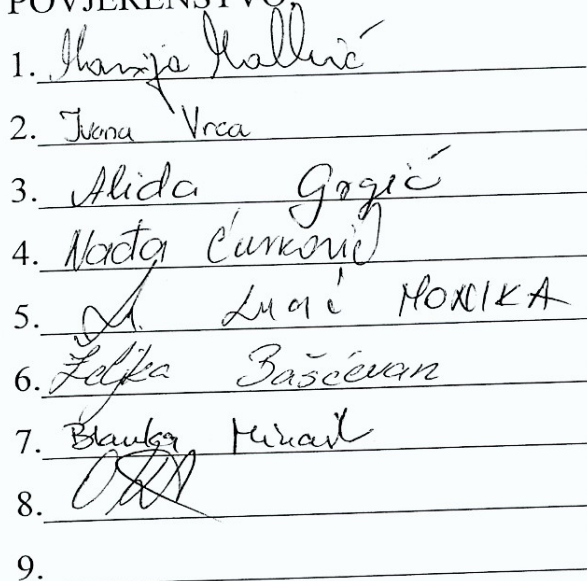 POVJERENSTVO:
1. Marija
2. Ivana Vrca
3. Alida Grgić
4. Nađa Ćurković
5. MONIKA
6. Željka Bašćevan
7. Blanka
8.
9.